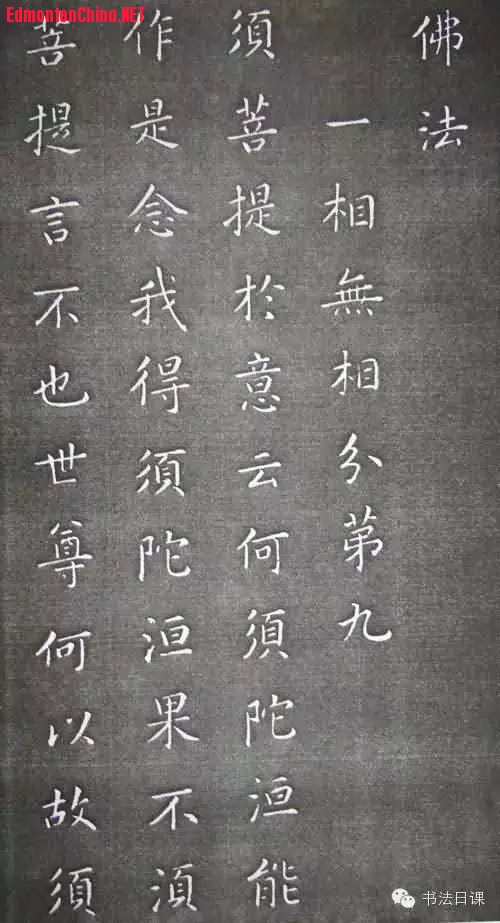 EdmontonChina.NET
佛法
一相無相分第九
須菩提於意云何須陀洹能
作是念我得須陀洹果不須
菩提言不也世尊何以故須
书法日课